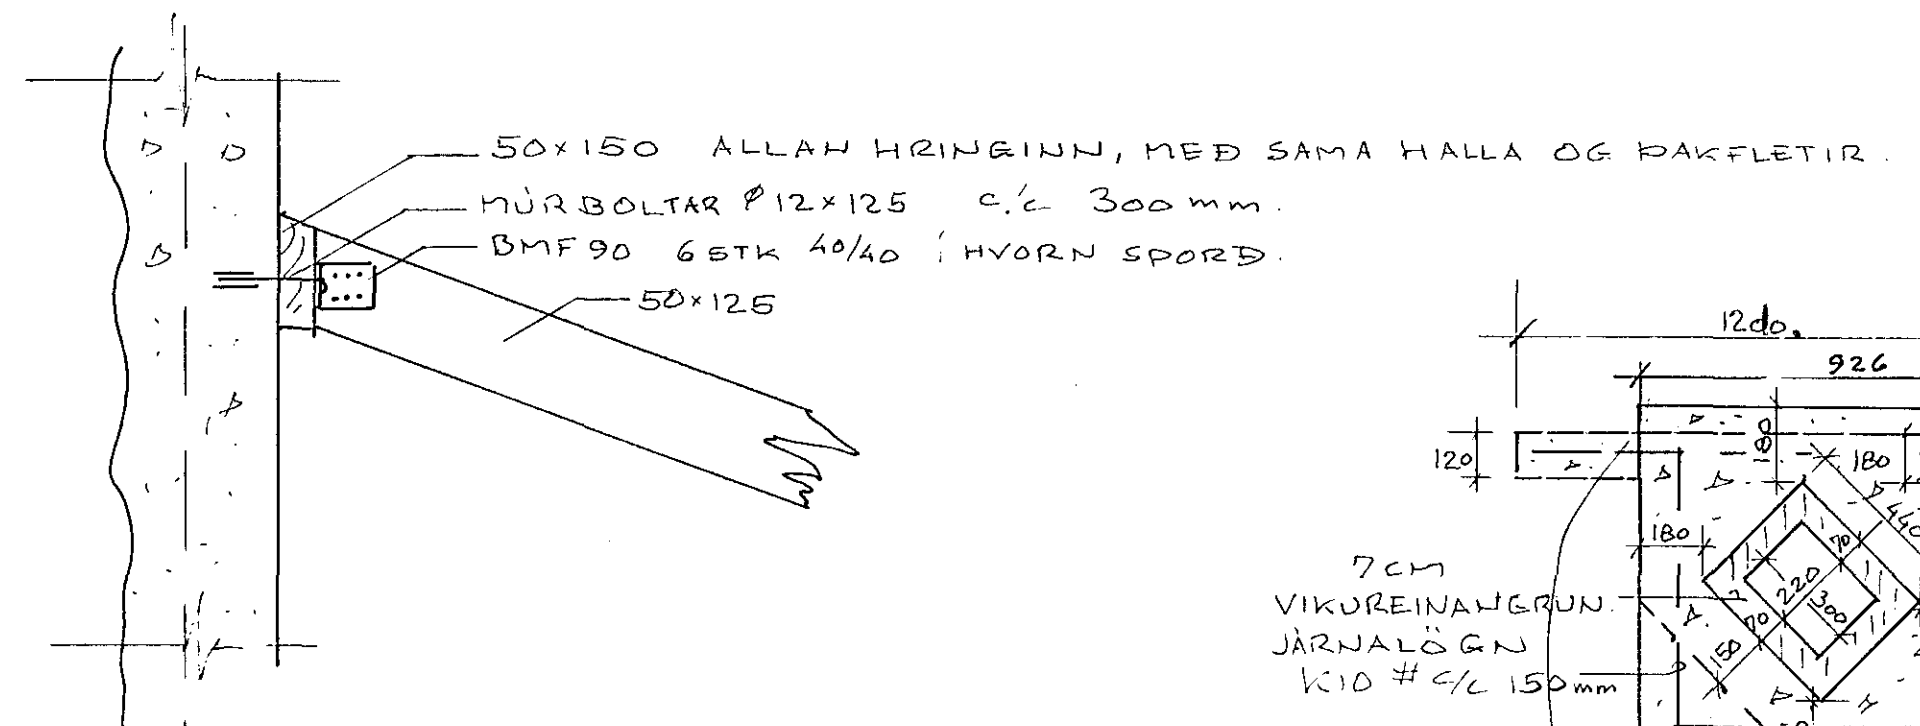 50×150 ALLAN HRINGINN, MEÐ SAMA HALLA OG ÞAKFLETIR.
MÚRBOLTAR Ø12×125 c/c 300 mm.
BMF 90 6 STK 40/40 Í HVORN SPORÐ.
50×125
926
120
180
180
440
70
220
300
70
150
7 CM
VIKUREINANGRUN.
JÁRNALÖGN
K10 # c/c 150 mm